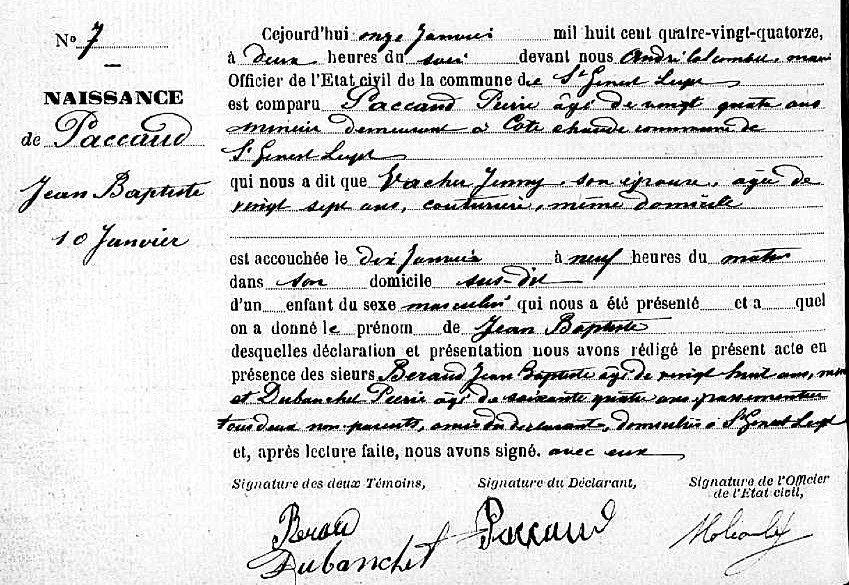 N° 7
NAISSANCE
de Paccaud
Jean Baptiste
10 Janvier
Cejourd'hui onze Janvier mil huit cent quatre-vingt-quatorze,
à deux heures du soir devant nous André Lacombe, maire
Officier de l'Etat civil de la commune de St Genest Lerpt
est comparu Paccaud Pierre âgé de vingt quatre ans
mineur demeurant à Côte chaude commune de
St Genest Lerpt
qui nous a dit que Vacher Jenny, son épouse, âgée de
vingt sept ans, couturière, même domicile
est accouchée le dix Janvier à neuf heures du matin
dans son domicile sus-dit
d'un enfant du sexe masculin qui nous a été présenté et a quel
on a donné le prénom de Jean Baptiste
desquelles déclaration et présentation nous avons rédigé le présent acte en
présence des sieurs Beraud Jean Baptiste âgé de vingt huit ans,
et Dubanchet Pierre âgé de soixante quatre ans passementier
tous deux non parents, amis du déclarant, domiciliés à St Genest Lerpt
et, après lecture faite, nous avons signé. avec eux
Signature des deux Témoins,
Beraud
Dubanchet
Signature du Déclarant,
Paccaud
Signature de l'Officier
de l'Etat civil,